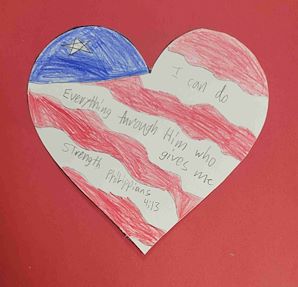 I can do
Everything through Him who
gives me
Strength Philippians
4:13